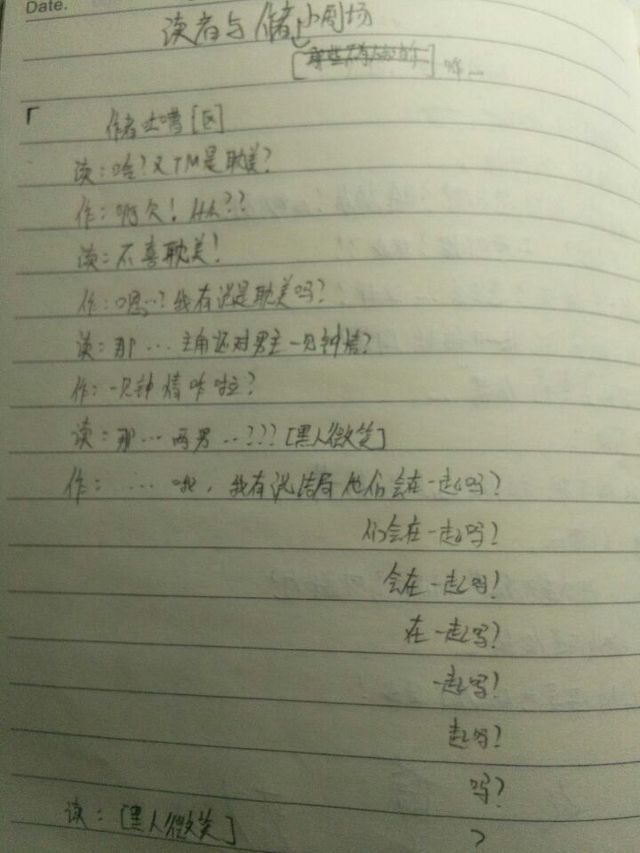 Date.
读者与作者小剧场
咋…
「
作者吐嘈[区]
读:哈?又TM是耽美?
作:啊欠!HA??
读:不喜耽美!
作:嗯…?我有说是耽美吗?
读:那…主角还对男主一见钟情?
作:一见钟情咋啦?
读:那…两男…???[黑人微笑]
作:…哦,我有说结局他们会在一起吗?
们会在一起吗?
会在一起吗?
在一起吗?
一起吗?
起吗?
吗?
?
读:[黑人微笑]